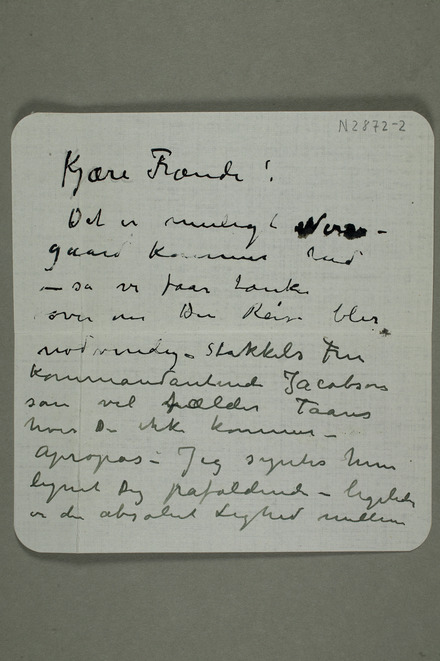 N2872-2
Kjære Frænde!
Det er muligt Nørre-
gaard kommer ind
– sa vi faar tænke
over om Din Reise blir
nødvendig – Stakkels Fru
Kommandantinde Jacobson
som vel fælder Taare
hvis Du ikke kommer –
Apropos – Jeg syntes hun
lignet Dig paafaldende – ligeledes
er der absolut Lighed mellem